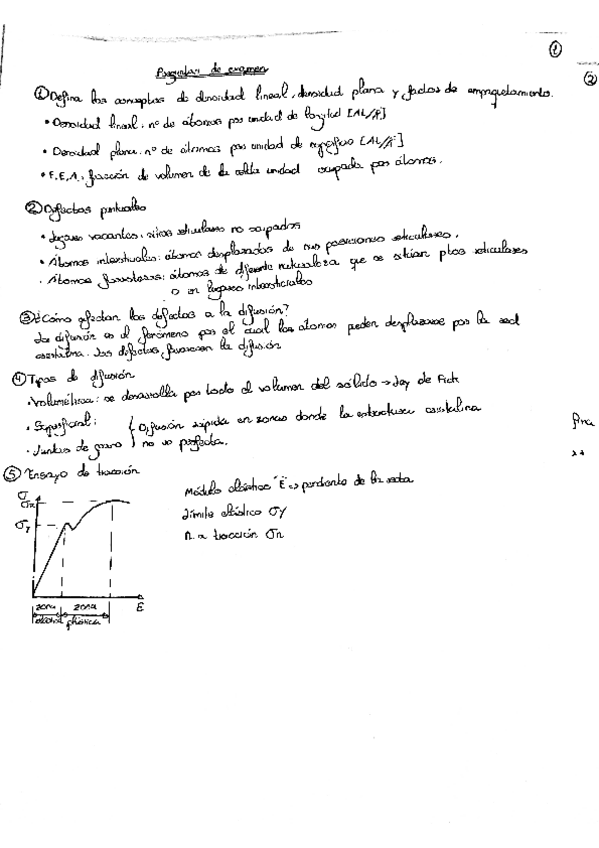 ①
②
Preguntas de examen
① Defina los conceptos de densidad lineal, densidad plana y factor de empaquetamiento.
• Densidad lineal: nº de átomos por unidad de longitud
• Densidad plana: nº de átomos por unidad de superficie
• F.E.A.: fracción de volumen de la celda unidad ocupada por átomos.
② Defectos puntuales
• Lugares vacantes: sitios reticulares no ocupados
• Átomos intersticiales: átomos desplazados de sus posiciones reticulares.
• Átomos forasteros: átomos de diferente naturaleza que se sitúan ptos reticulares
o en lugares intersticiales
③ ¿Cómo afectan los defectos a la difusión?
La difusión es el fenómeno por el cual los átomos pueden desplazarse por la red
cristalina. Los defectos favorecen la difusión
④ Tipos de difusión
• Volumétrica: se desarrolla por todo el volumen del sólido → Ley de Fick
• Superficial: { Difusión rápida en zonas donde la estructura cristalina
• Juntas de grano } no es perfecta.
⑤ Ensayo de tracción
Módulo elástico "E" => pendiente de la recta
Límite elástico σy
R. a tracción σR
σ
σR
σy
zona zona
elástica plástica
E